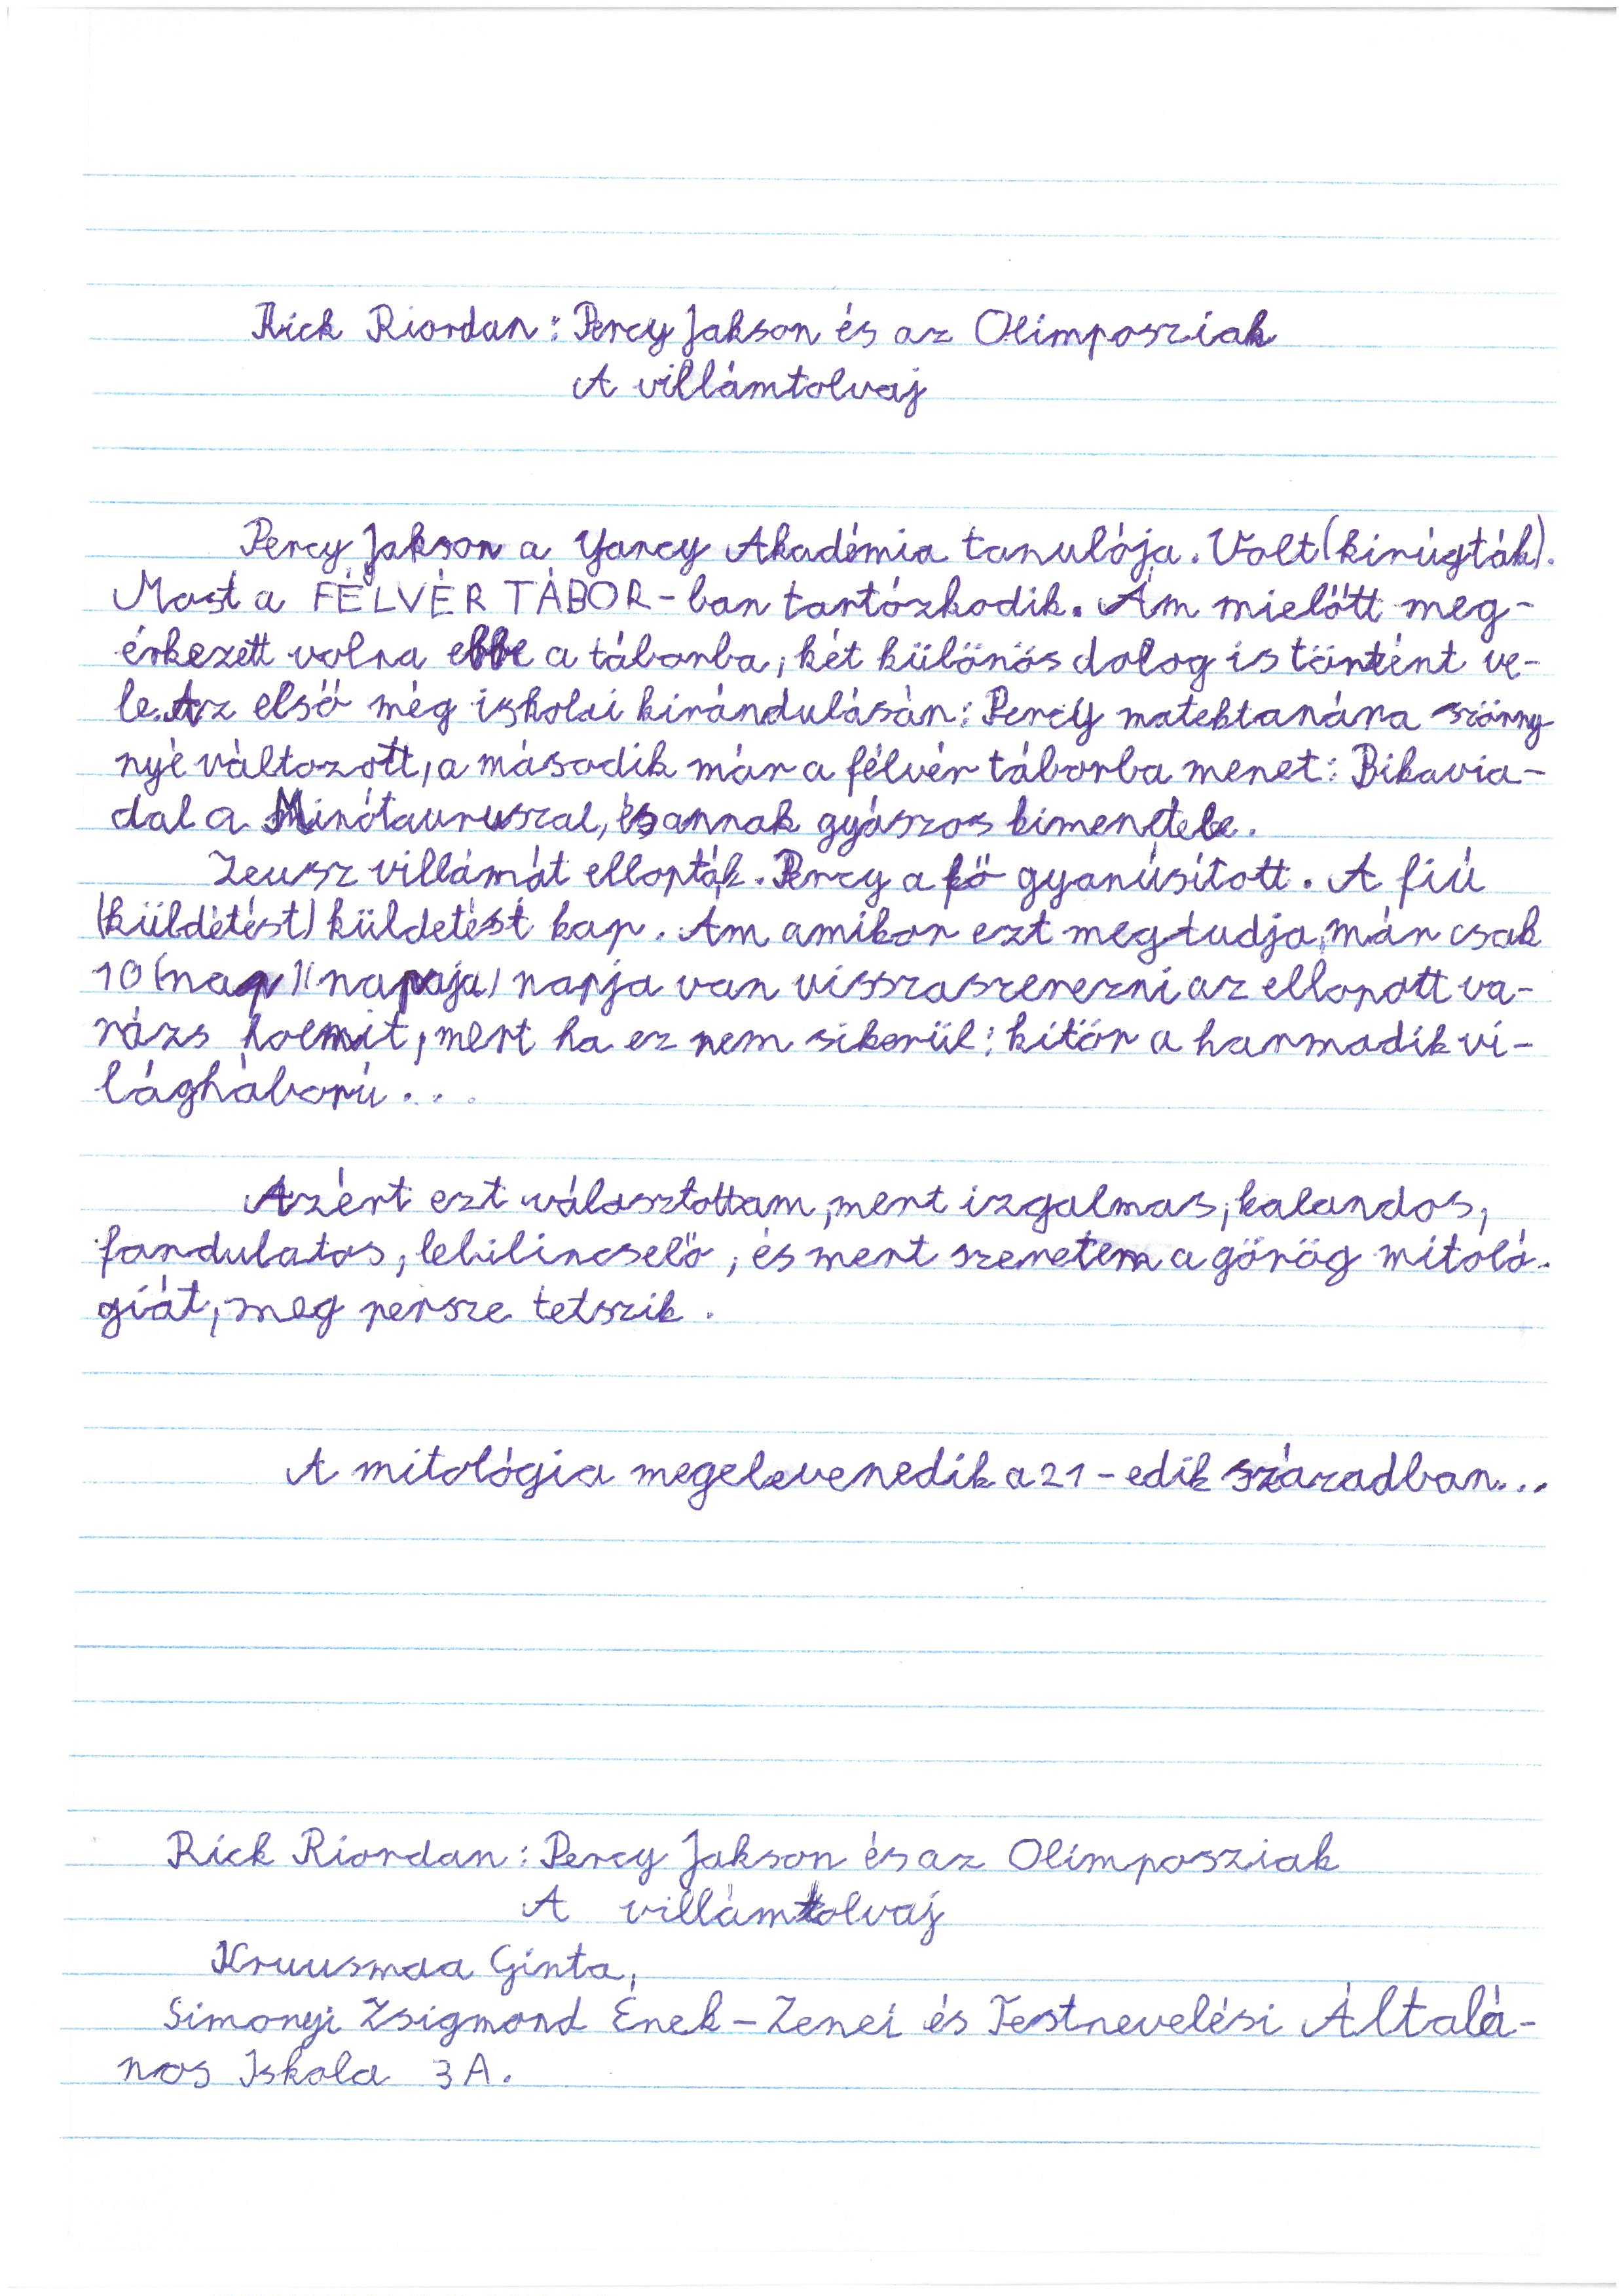 Rick Riordan: Percy Jakson és az Olimposziak
A villámtolvaj
Percy Jakson a Yancy Akadémia tanulója. Volt (kirúgták).
Most a FÉLVÉR TÁBOR-ban tartózkodik. Ám mielőtt meg-
érkezett volna ebbe a táborba, két különös dolog is történt ve-
le. Az első még iskolai kirándulásán: Percy matektanára szörny
nyé változott, a második már a félvér táborba menet: Bikavia-
dal a Minótaurusszal, és annak gyászos kimenetele.
Zeusz villámát ellopták. Percy a fő gyanúsított. A fiú
(küldétést) küldetést kap. Ám amikor ezt megtudja, már csak
10 (nap) (napaja) napja van visszaszerezni az ellopott va-
rázs holmit, mert ha ez nem sikerül: kitör a harmadik vi-
lágháború...
Azért ezt választottam, mert izgalmas, kalandos,
fordulatos, lebilincselő, és mert szeretem a görög mitoló-
giát, meg persze tetszik.
A mitológia megelevenedik a 21-edik században...
Rick Riordan: Percy Jakson és az Olimposziak
A villámtolvaj
Kruusmaa Ginta,
Simonyi Zsigmond Ének-Zenei és Testnevelési Általá-
nos Iskola 3A.